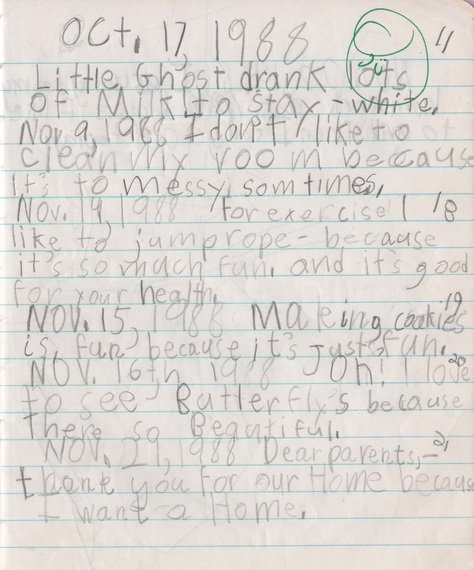 Oct, 17, 1988 11
Little Ghost drank lots
Of Milk to stay - white.
Nov. 9, 1988 I don't like to
clean my room because
it's to messy, som times,
Nov. 14, 1988 for exercise I 18
like to jumprope- because
it's so much fun. and it's good
for your health.
NOV. 15, 1988 Making cookies 19
is fun because it's just fun.
NOV. 16th 1988 Oh! I love 20
to see Butterfly's because
there so Beautiful.
NOV. 21, 1988 Dear parents,- 21
thank you for our Home becaus
I want a Home.